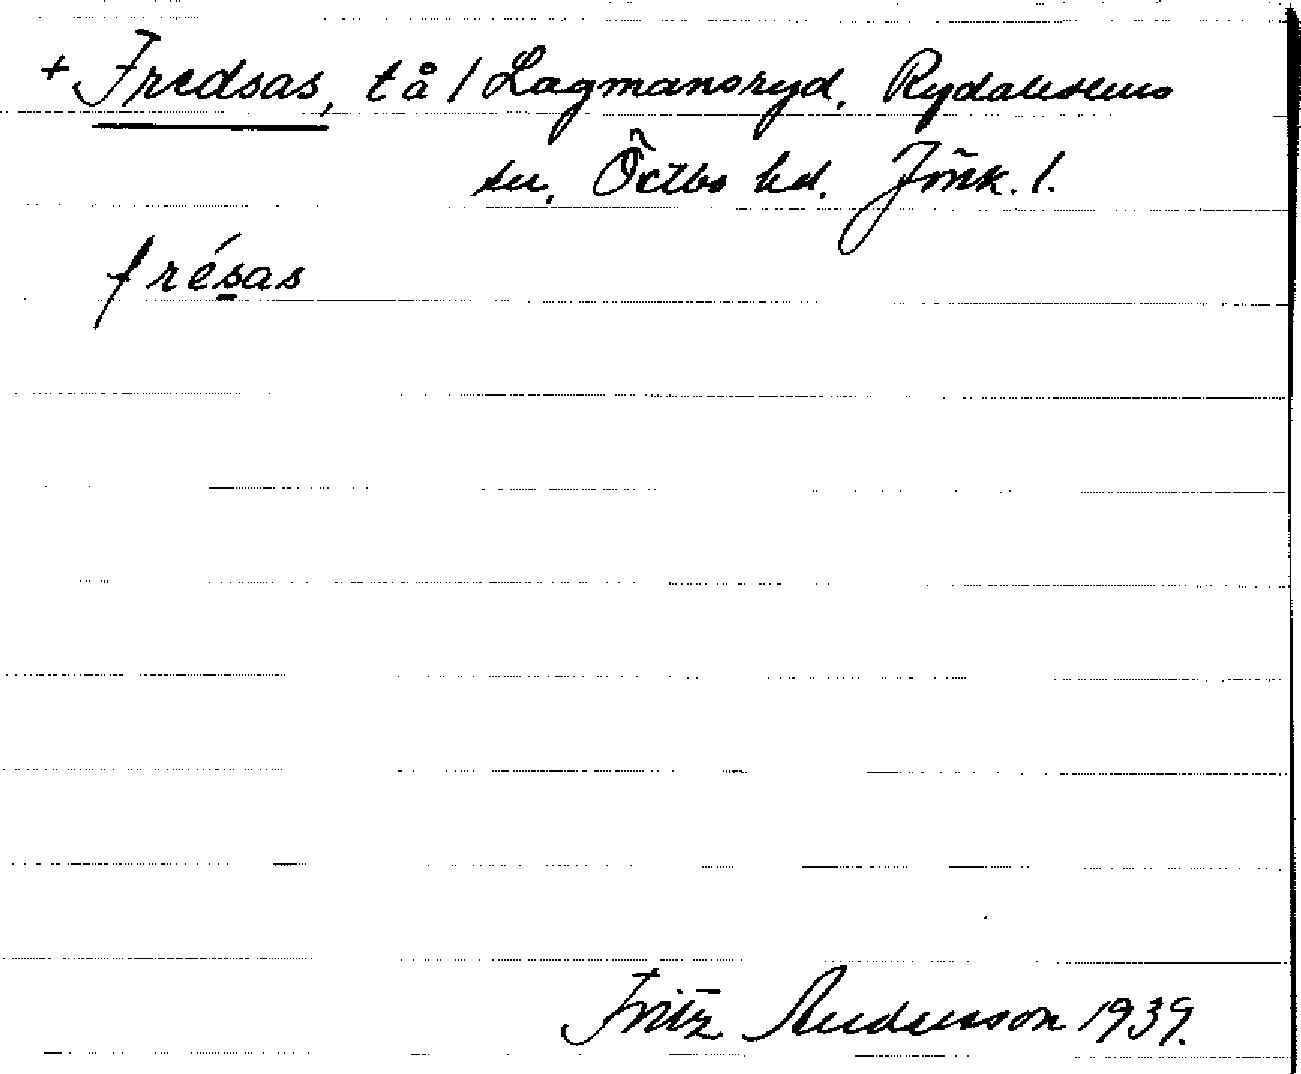 + Fredsas, tå / Lagmansryd, Rydaholms
sn, Östbo hd. Jönk. l.
frésas
Fritz Andersson 1939.